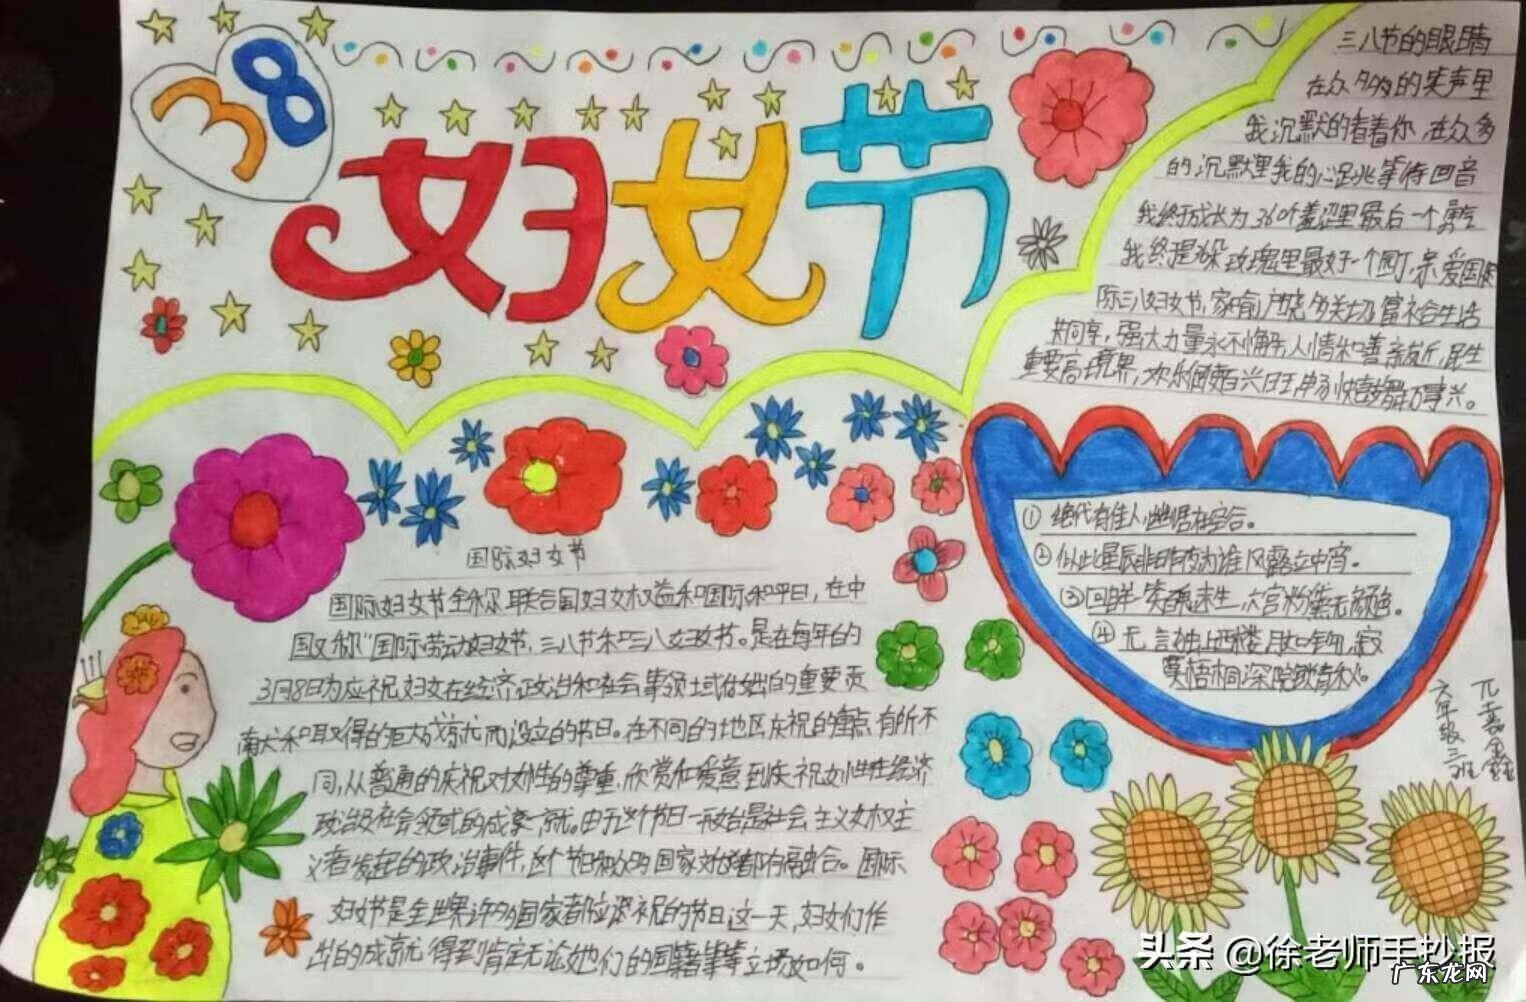 38
妇女节
三八节的眼睛
在众多的笑声里
我沉默的看着你,在众多
的沉默里我的心跳等待回音
我终于成长为36个羞涩里最后一个勇气
我终是
玫瑰里最
一个
亲爱国
际三八妇女节,家
户晓
生活
共同享,强大力量永不懈
人情和善亲
民生
重要高境界,欢乐
兴。
国际妇女节
国际妇女节全称联合国妇女权益和国际和平日,在中
国又称“国际劳动妇女节,三八节和三八妇女节。是在每年的
3月8日为庆祝妇女在经济政治和社会等领域作出的重要贡
献和取得的巨大成就而设立的节日。在不同的地区庆祝的重点有所不
同,从普通的庆祝对女性的尊重,欣赏和爱意到庆祝女性在经济
政治及社会领域的成
就。由于这个节日一开始是社会主义女权主
义者发起的政治事件,这个节日和众多国家文化都有融合。国际
妇女节是全世界许多国家都庆祝的节日这一天,妇女们作
出的成就得到肯定无论她们的国籍
立场如何。
① 绝代有佳人,幽居在空谷。
② 似此星辰非昨夜为谁风露立中宵。
③ 回眸一笑百媚生,六宫粉黛无颜色。
④ 无言独上西楼,月如钩,寂
寞梧桐深院锁清秋。
六年级三班
头条 @徐老师手抄报
广东龙网